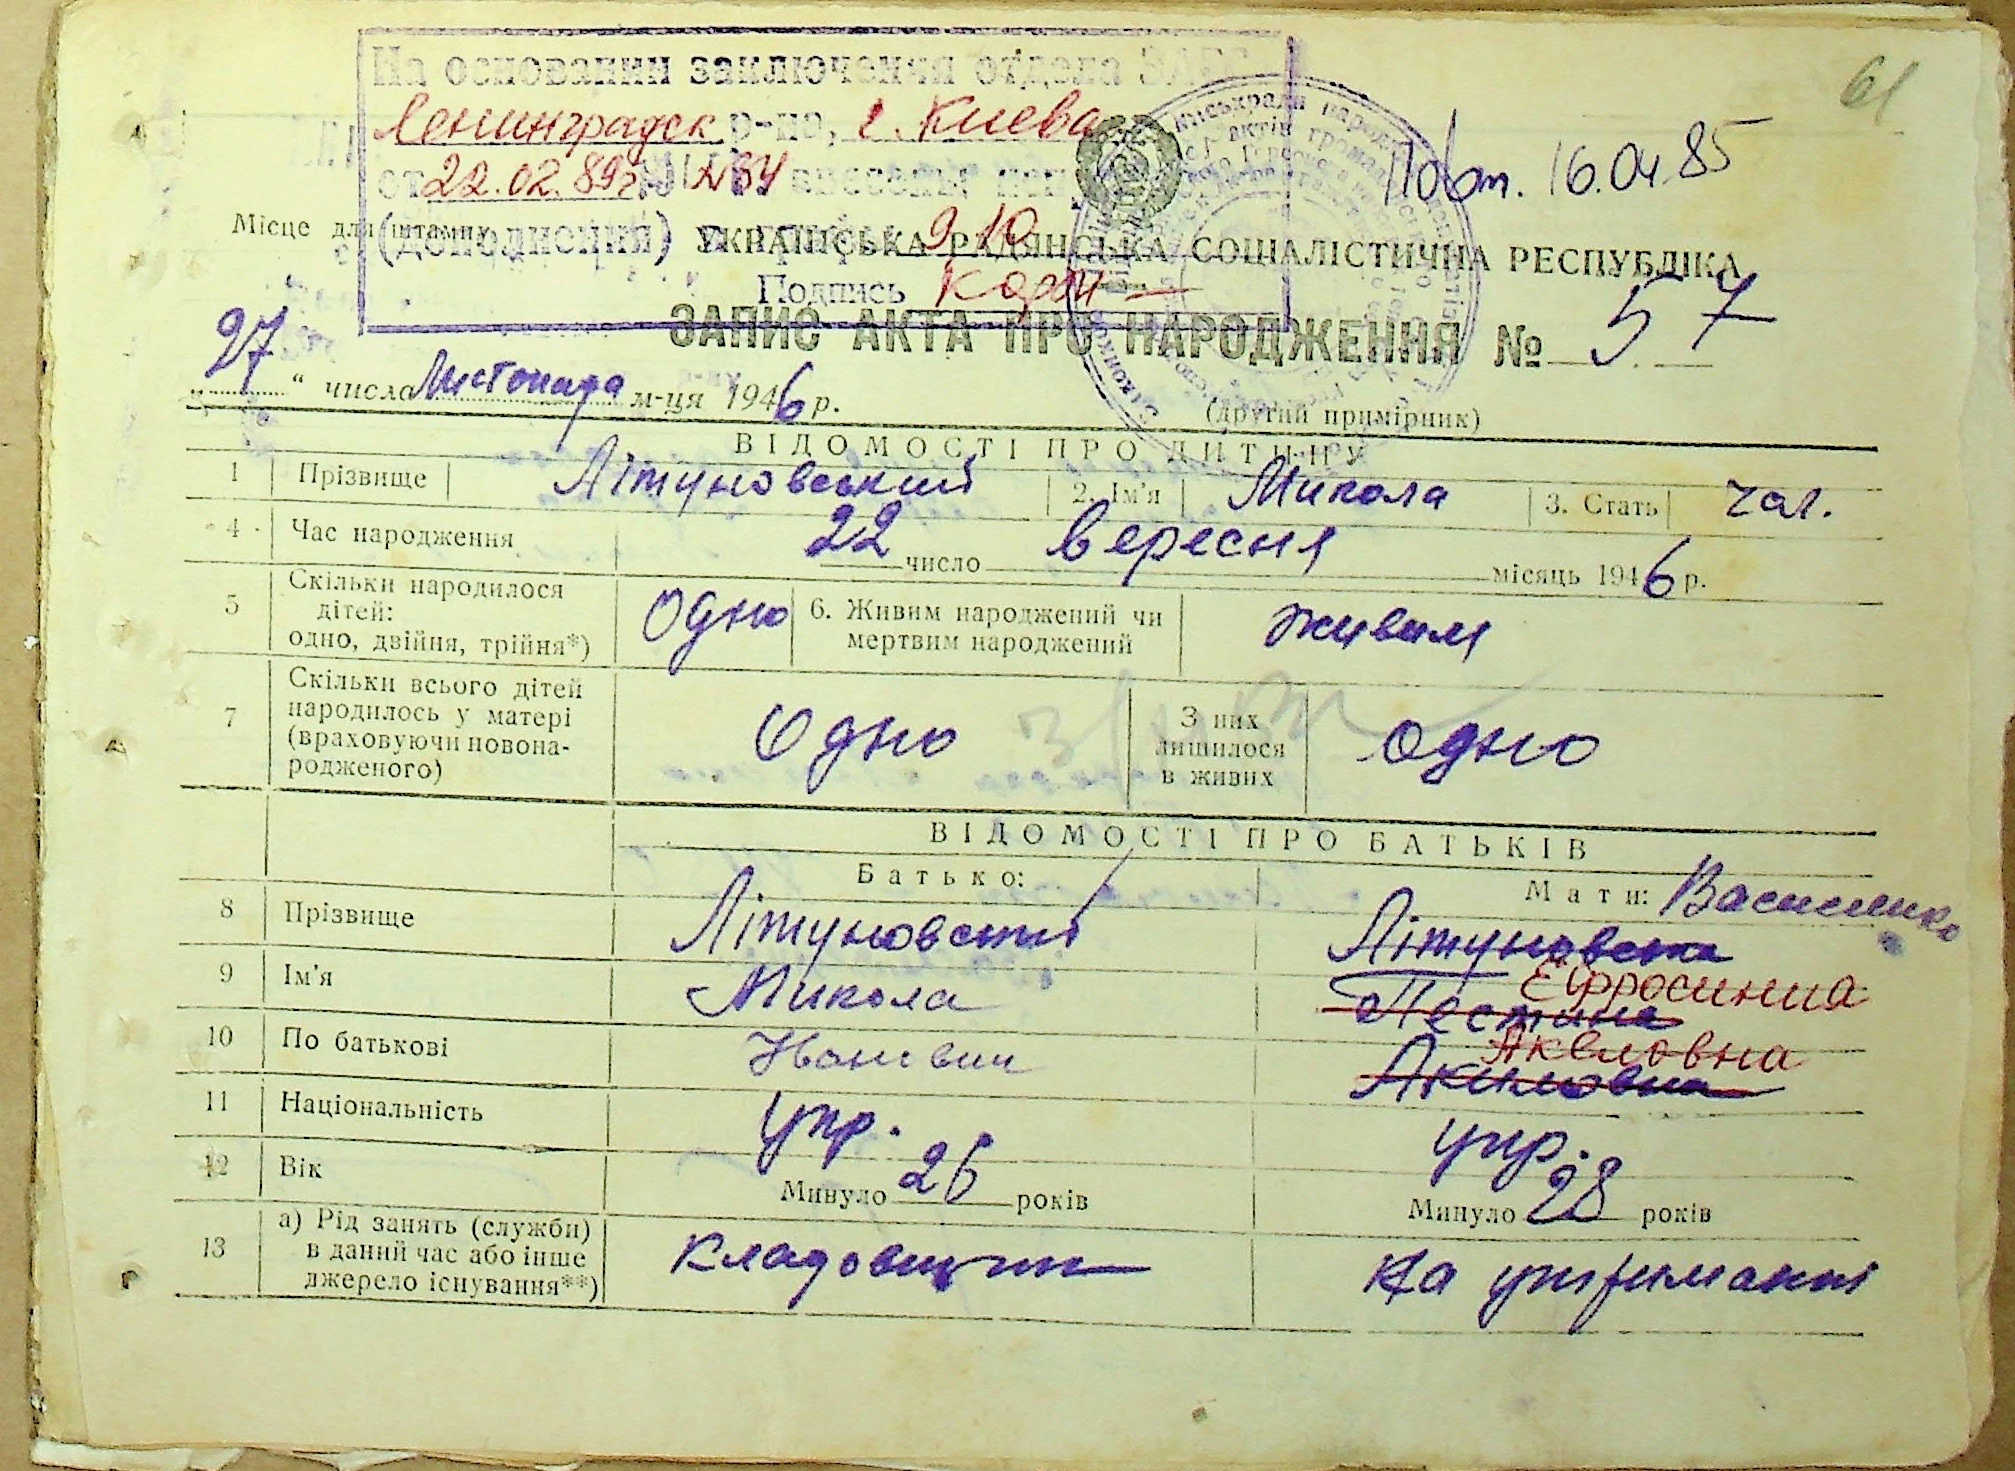 61
На основании заключения отдела ЗАГС
Ленинградск р-но, г. Киева
от 22.02.89г № 34 внесены
Повт. 16.04.85
Місце для штампу
(дополнения) 9, 10
УКРАЇНСЬКА РАДЯНСЬКА СОЦІАЛІСТИЧНА РЕСПУБЛІКА
Подпись
ЗАПИС АКТА ПРО НАРОДЖЕННЯ № 57
27 " числа Листопада м-ця 1946 р.
(другий примірник)
ВІДОМОСТІ ПРО ДИТИНУ
1 Прізвище Літуновський 2. Ім'я Микола 3. Стать чол.
4 Час народження 22 число вересня місяць 1946 р.
5 Скільки народилося
дітей:
одно, двійня, трійня*) Одно 6. Живим народжений чи
мертвим народжений живим
7 Скільки всього дітей
народилось у матері
(враховуючи новона-
родженого) Одно З них
лишилося
в живих одно
ВІДОМОСТІ ПРО БАТЬКІВ
Батько: Мати: Василенко
8 Прізвище Літуновський Літуновська
9 Ім'я Микола Пестина Ефросиния
10 По батькові Іванович Акимовна Акеловна
11 Національність укр. укр.
12 Вік Минуло 26 років Минуло 28 років
13 а) Рід занять (служби)
в даний час або інше
джерело існування**) Кладовщик На утриманні